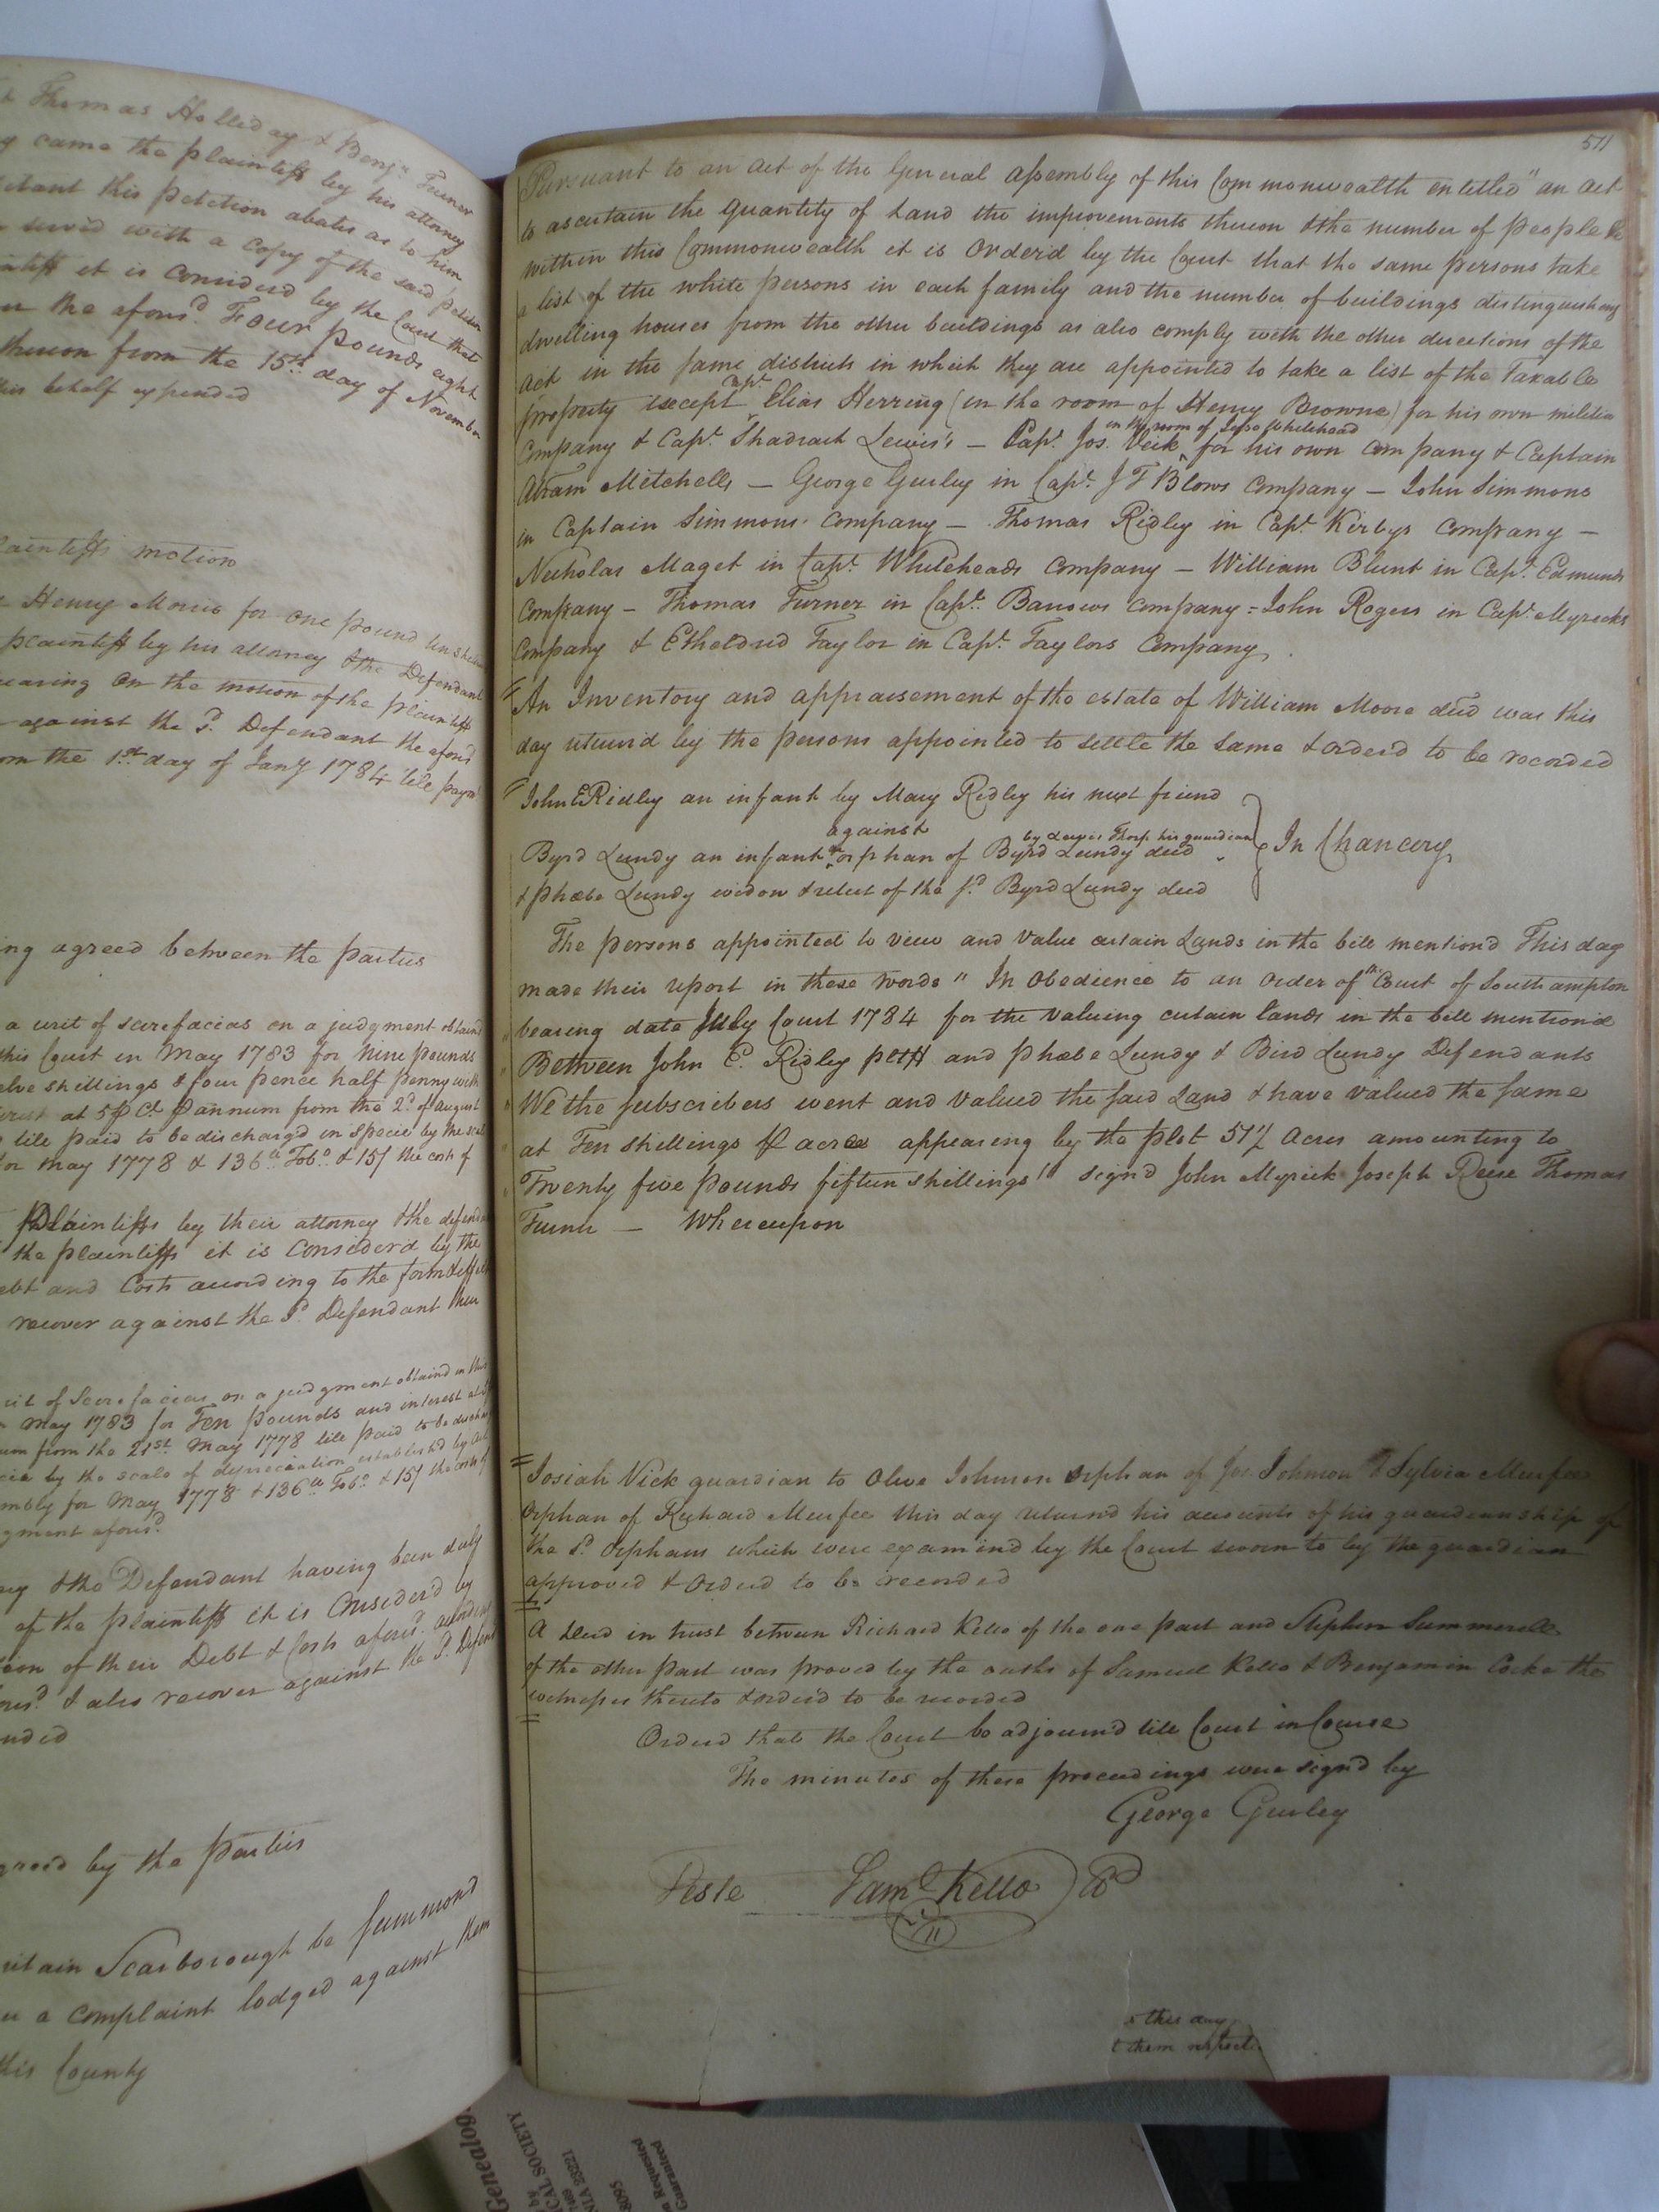 Thomas Holliday & Benjn Turner
came the plaintiff by his attorney
this petition abates as to him
serv'd with a copy of the said petition
it is Considerd by the Court that
the afores.d Four pounds eight
thereon from the 15th day of November
his behalf expended
motion
Henry Morris for one pound ten
plaintiff by his attorney & the Defendant
on the motion of the plaintiff
against the s.d Defendant the afores'd
the 1st day of Jany 1784 till paym.t
agreed between the parties
a writ of scirefacias on a judgment obtaind
this Court in May 1783 for Nine pounds
shillings & four pence half penny with
at 5 p Ct p annum from the 2.d of August
till paid to be discharg'd in specie by the scale
for May 1778 & 136 lb Tob.o & 15/ the costs of
Plaintiffs by their attorney & the defendant
the plaintiffs it is Consider'd by the
and Costs according to the form & effect
recover against the s.d Defendant their
of Scirefacias on a judgment obtaind in this
May 1783 for Ten pounds and interest at
from the 21st May 1778 till paid to be
by the scale of depreciation establish'd by
for May 1778 & 136 lb Tob.o & 15/ the costs of
afores.d
& the Defendant having been duly
of the plaintiffs it is Consider'd by
of their Debt & Costs afores.d
& also recover against the s.d
by the parties
Scarborough be summond
a complaint lodged against them
this County
511
Pursuant to an act of the General assembly of this Commonwealth entitled "an act
to ascertain the quantity of Land the improvements thereon & the number of people
within this Commonwealth it is Order'd by the Court that the same persons take
a list of the white persons in each family and the number of buildings distinguishing
dwelling houses from the other buildings as also comply with the other directions of the
act in the same districts in which they are appointed to take a list of the Taxable
property except Cap.t Elias Herring (in the room of Henry Browne) for his own militia
Company & Cap.t Shadrack Lewis's — Cap.t Jos. Vick in the room of Jesse Whitehead for his own company & Captain
Abram Mitchells — George Gurley in Cap.t J T Blows Company — John Simmons
in Captain Simmons Company — Thomas Ridley in Cap.t Kirbys Company —
Nicholas Maget in Cap.t Whiteheads Company — William Blunt in Cap.t Edmunds
Company — Thomas Turner in Cap.t Barrows Company = John Rogers in Cap.t Myricks
Company & Etheldred Taylor in Cap.t Taylors Company
An Inventory and appraisement of the estate of William Moore decd was this
day return'd by the persons appointed to settle the same & order'd to be recorded
John E Ridley an infant by Mary Ridley his next friend
against
Byrd Lundy an infant & orphan of Byrd Lundy decd by Lewis Thorp his guardian } In Chancery
& phœbe Lundy widow & relict of the s.d Byrd Lundy decd
The persons appointed to view and value certain Lands in the bill mention'd This day
made their report in these words " In Obedience to an order of the Court of Southampton
bearing date July Court 1784 for the valuing certain lands in the bill mention'd
Between John E. Ridley peltf and phœbe Lundy & Bird Lundy Defendants
We the subscribers went and valued the said Land & have valued the same
at Ten shillings p acre appearing by the plot 51½ Acres amounting to
Twenty five pounds fifteen shillings" sign'd John Myrick Joseph Reese Thomas
Turner — Whereupon
Josiah Vick guardian to Olive Johnson Orphan of Jos. Johnson & Sylvia Murfee
Orphan of Richard Murfee this day return'd his accounts of his guardianship of
the s.d Orphans which were examin'd by the Court sworn to by the guardian
approved & Order'd to be recorded
A deed in trust between Richard Kello of the one part and Stephen Summerell
of the other part was proved by the oaths of Samuel Kello & Benjamin Cocke the
witnesses thereto & order'd to be recorded
Order'd that the Court be adjourn'd till Court in Course
The minutes of these proceedings were sign'd by
George Gurley
Teste Sam.l Kello
this any
them respect
Genealog
CAL SOCIETY
NIA 23221
8095
Requested
Guaranteed